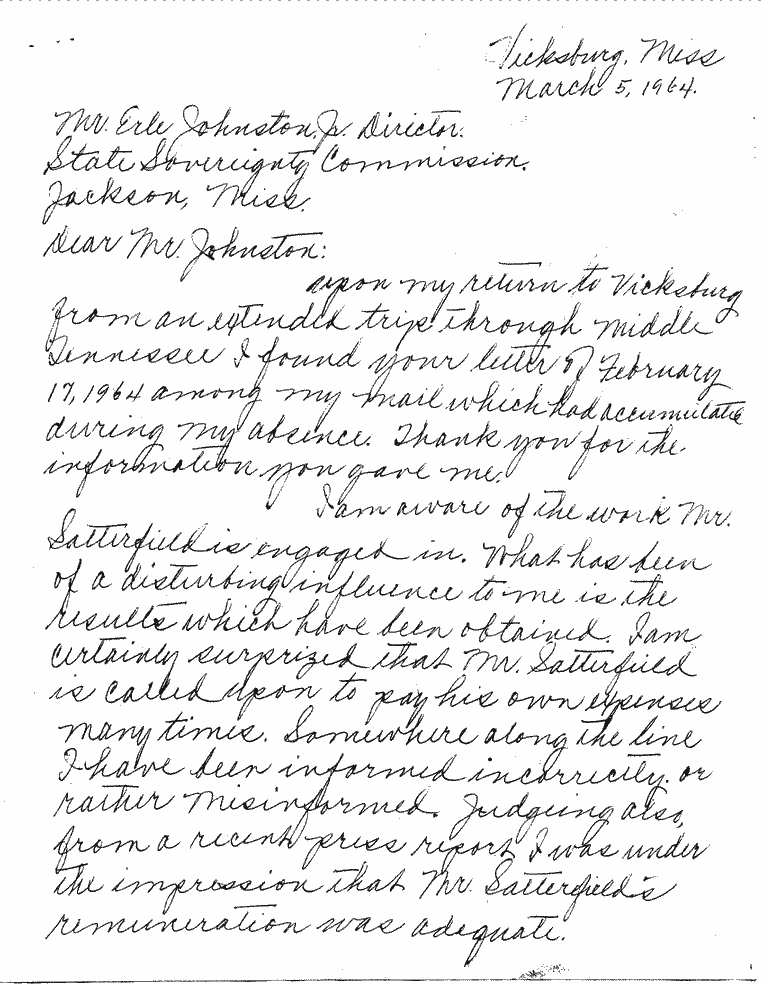 Vicksburg, Miss
March 5, 1964.
Mr. Erle Johnston, Jr. Director.
State Sovereignty Commission.
Jackson, Miss.
Dear Mr. Johnston:
upon my return to Vicksburg
from an extended trip through middle
Tennessee I found your letter of February
17, 1964 among my mail which had accumulated
during my absence. Thank you for the
information you gave me.
I am aware of the work Mr.
Satterfield is engaged in. What has been
of a disturbing influence to me is the
results which have been obtained. I am
certainly surprized that Mr. Satterfield
is called upon to pay his own expenses
many times. Somewhere along the line
I have been informed incorrectly. or
rather misinformed. Judgeing also,
from a recent press report I was under
the impression that Mr. Satterfield's
remuneration was adequate.